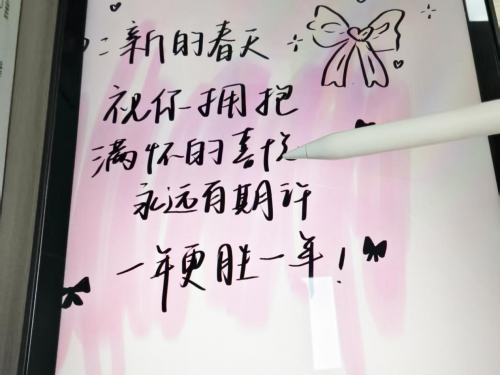 :新的春天
祝你拥抱
满怀的喜悦
永远有期许
一年更胜一年!